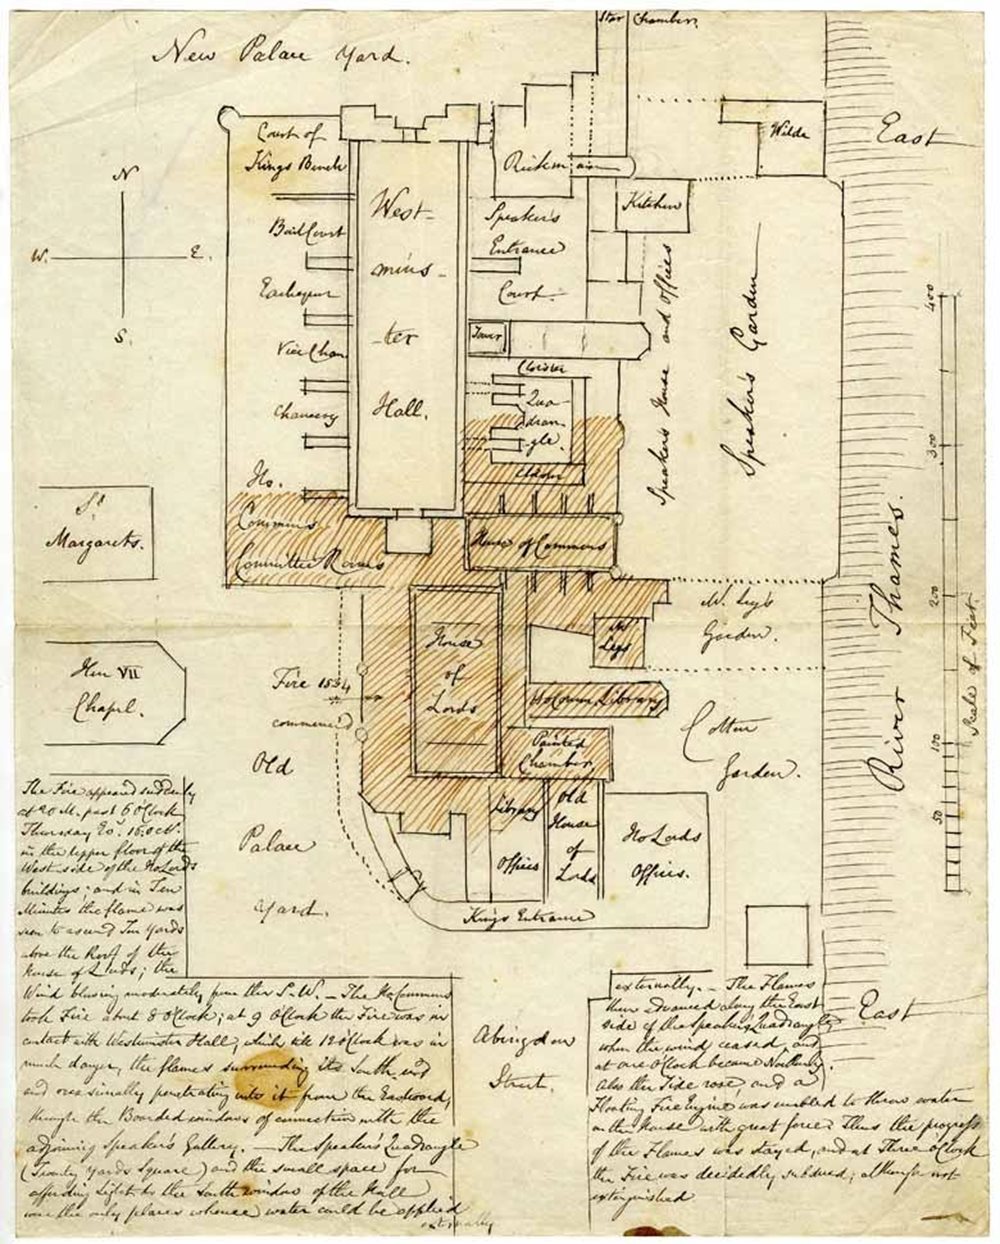 Star Chamber.
New Palace Yard.
Court of
Kings Bench
Wilde
East
Rickman
N
W. E.
S.
West-
mins-
-ter
Hall.
Kitchen
Speaker's
Entrance
Court.
Bail Court
Exchequer
Vice Chan.
Chancery
Tower
Cloister
Qua-
dran-
gle.
Cloister
Speakers House and Offices
Speaker's Garden
400
300
200
100
50
Scale of Feet.
River Thames.
Ho.
Commons
Committee Rooms
House of Commons
St
Margarets.
Hen VII
Chapel.
House
of
Lords
Mr Leys
Mr Ley's
Garden.
Ho Comm Library
Cotton
Garden.
Fire 1834
commenced
Painted
Chamber
Old
Palace
Yard.
Library
Offices
Old
House
of
Lords
Ho Lords
Offices.
Kings Entrance
East
Abingdon
Street.
The Fire appeared suddenly
at 20 M. past 6 OClock
Thursday Eg. 16. Oct.
in the upper floor of the
West side of the Ho Lords
buildings; and in Ten
Minutes the flame was
seen to ascend Ten Yards
above the Roof of the
House of Lords; the
Wind blowing moderately from the S.W. — The Ho Commons
took Fire about 8 OClock; at 9 OClock the Fire was in
contact with Westminster Hall, which till 12 OClock was in
much danger, the flames surrounding its South end
and occasionally penetrating into it from the Eastward,
through the Boarded windows of connection with the
adjoining Speaker's Gallery. — The Speaker's Quadrangle
(Twenty Yards Square) and the small space for
affording Light to the South window of the Hall
were the only places whence water could be applied
externally
externally. — The Flames
then advanced along the East
side of the Speakers Quadrangle
when the wind ceased, and
at one OClock became Northerly.
Also the Tide rose, and a
Floating Fire Engine was enabled to throw water
on the House with great force. Thus the progress
of the Flames was stayed, and at Three OClock
the Fire was decidedly subdued, although not
extinguished